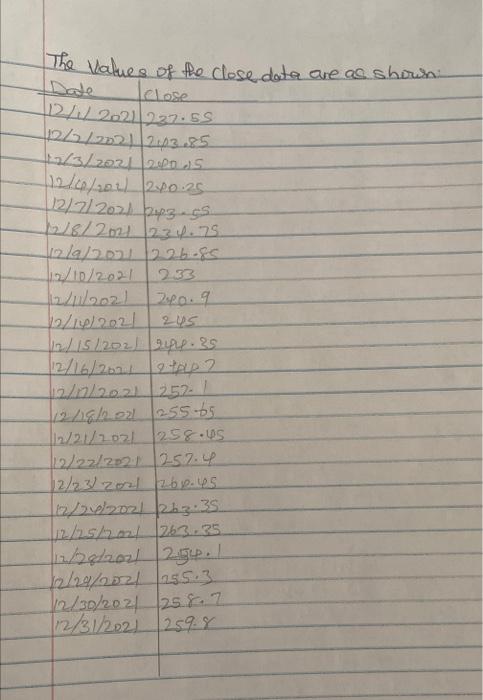 The values of the close data are as shown:
Date Close
12/1/2021 237.55
12/2/2021 243.85
12/3/2021 240.15
12/4/2021 240.25
12/7/2021 243.55
12/8/2021 234.75
12/9/2021 226.85
12/10/2021 233
12/11/2021 240.9
12/14/2021 245
12/15/2021 244.35
12/16/2021
12/17/2021 257.1
12/18/2021 255.65
12/21/2021 258.45
12/22/2021 257.4
12/23/2021 260.45
12/24/2021 263.35
12/25/2021 263.35
12/28/2021 254.1
12/29/2021 255.3
12/30/2021 258.7
12/31/2021 259.8